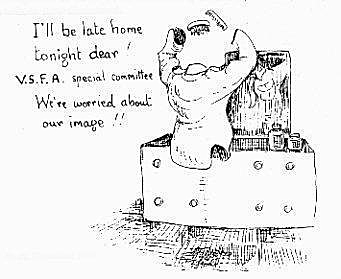 I'll be late home
tonight dear!
V.S.F.A. special committee
We're worried about
our image !!